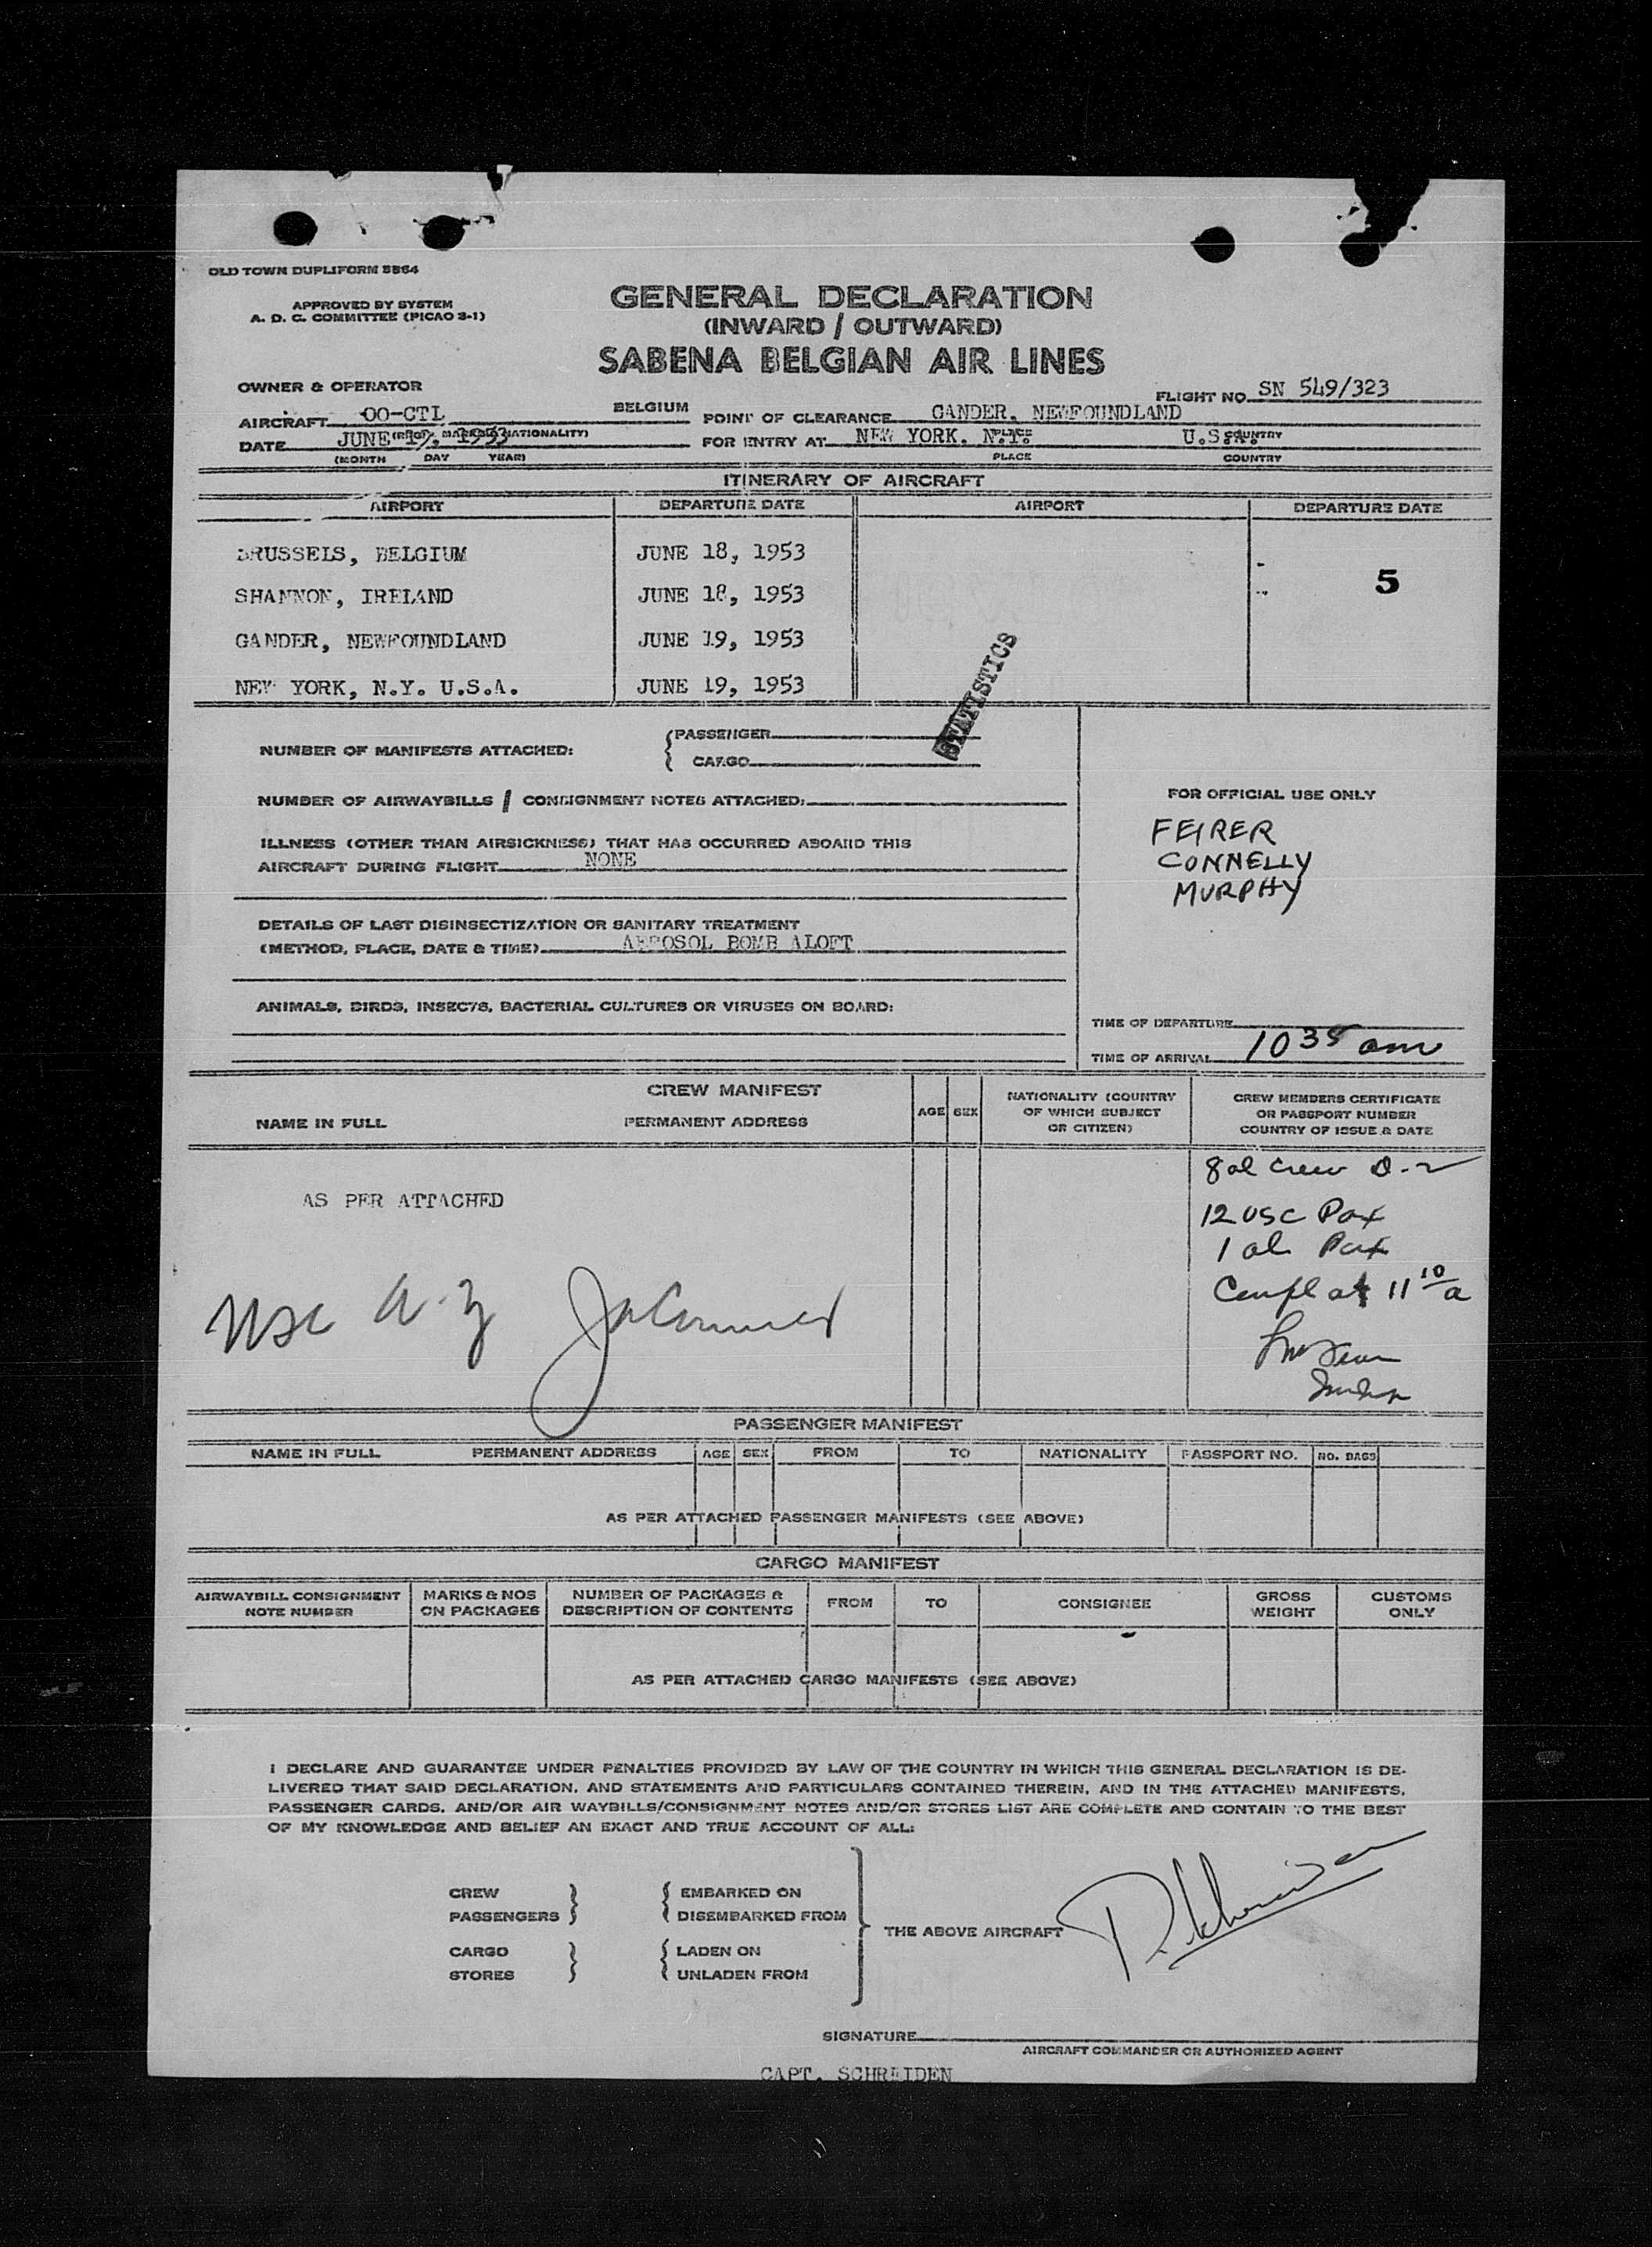 OLD TOWN DUPLIFORM 5564
APPROVED BY SYSTEM
A. D. C. COMMITTEE (PICAO 3-1)
GENERAL DECLARATION
(INWARD / OUTWARD)
SABENA BELGIAN AIR LINES
OWNER & OPERATOR
FLIGHT NO. SN 549/323
AIRCRAFT OO-CTL BELGIUM POINT OF CLEARANCE GANDER, NEWFOUNDLAND
DATE JUNE 19, 1953 FOR ENTRY AT NEW YORK. N.Y. U.S.A.
(MONTH DAY YEAR) PLACE COUNTRY
ITINERARY OF AIRCRAFT
AIRPORT DEPARTURE DATE AIRPORT DEPARTURE DATE
BRUSSELS, BELGIUM JUNE 18, 1953
5
SHANNON, IRELAND JUNE 18, 1953
GANDER, NEWFOUNDLAND JUNE 19, 1953
NEW YORK, N.Y. U.S.A. JUNE 19, 1953
STATISTICS
NUMBER OF MANIFESTS ATTACHED:
PASSENGER
CARGO
NUMBER OF AIRWAYBILLS / CONSIGNMENT NOTES ATTACHED:
FOR OFFICIAL USE ONLY
FEIRER
CONNELLY
MURPHY
ILLNESS (OTHER THAN AIRSICKNESS) THAT HAS OCCURRED ABOARD THIS
AIRCRAFT DURING FLIGHT NONE
DETAILS OF LAST DISINSECTIZATION OR SANITARY TREATMENT
(METHOD, PLACE, DATE & TIME) AEROSOL BOMB ALOFT
ANIMALS, BIRDS, INSECTS, BACTERIAL CULTURES OR VIRUSES ON BOARD:
TIME OF DEPARTURE
TIME OF ARRIVAL 10 35 am
CREW MANIFEST
NAME IN FULL PERMANENT ADDRESS AGE SEX
NATIONALITY (COUNTRY
OF WHICH SUBJECT
OR CITIZEN)
CREW MEMBERS CERTIFICATE
OR PASSPORT NUMBER
COUNTRY OF ISSUE & DATE
AS PER ATTACHED
8 al Crew D-2
12 USC Pax
1 al Pax
Compl at 11 10 a
PASSENGER MANIFEST
NAME IN FULL PERMANENT ADDRESS AGE SEX FROM TO NATIONALITY PASSPORT NO. NO. BAGS
AS PER ATTACHED PASSENGER MANIFESTS (SEE ABOVE)
CARGO MANIFEST
AIRWAYBILL CONSIGNMENT
NOTE NUMBER
MARKS & NOS
ON PACKAGES
NUMBER OF PACKAGES &
DESCRIPTION OF CONTENTS
FROM TO CONSIGNEE
GROSS
WEIGHT
CUSTOMS
ONLY
AS PER ATTACHED CARGO MANIFESTS (SEE ABOVE)
I DECLARE AND GUARANTEE UNDER PENALTIES PROVIDED BY LAW OF THE COUNTRY IN WHICH THIS GENERAL DECLARATION IS DE-
LIVERED THAT SAID DECLARATION, AND STATEMENTS AND PARTICULARS CONTAINED THEREIN, AND IN THE ATTACHED MANIFESTS,
PASSENGER CARDS, AND/OR AIR WAYBILLS/CONSIGNMENT NOTES AND/OR STORES LIST ARE COMPLETE AND CONTAIN TO THE BEST
OF MY KNOWLEDGE AND BELIEF AN EXACT AND TRUE ACCOUNT OF ALL:
CREW EMBARKED ON
PASSENGERS DISEMBARKED FROM
THE ABOVE AIRCRAFT
CARGO LADEN ON
STORES UNLADEN FROM
SIGNATURE
AIRCRAFT COMMANDER OR AUTHORIZED AGENT
CAPT. SCHREIDEN